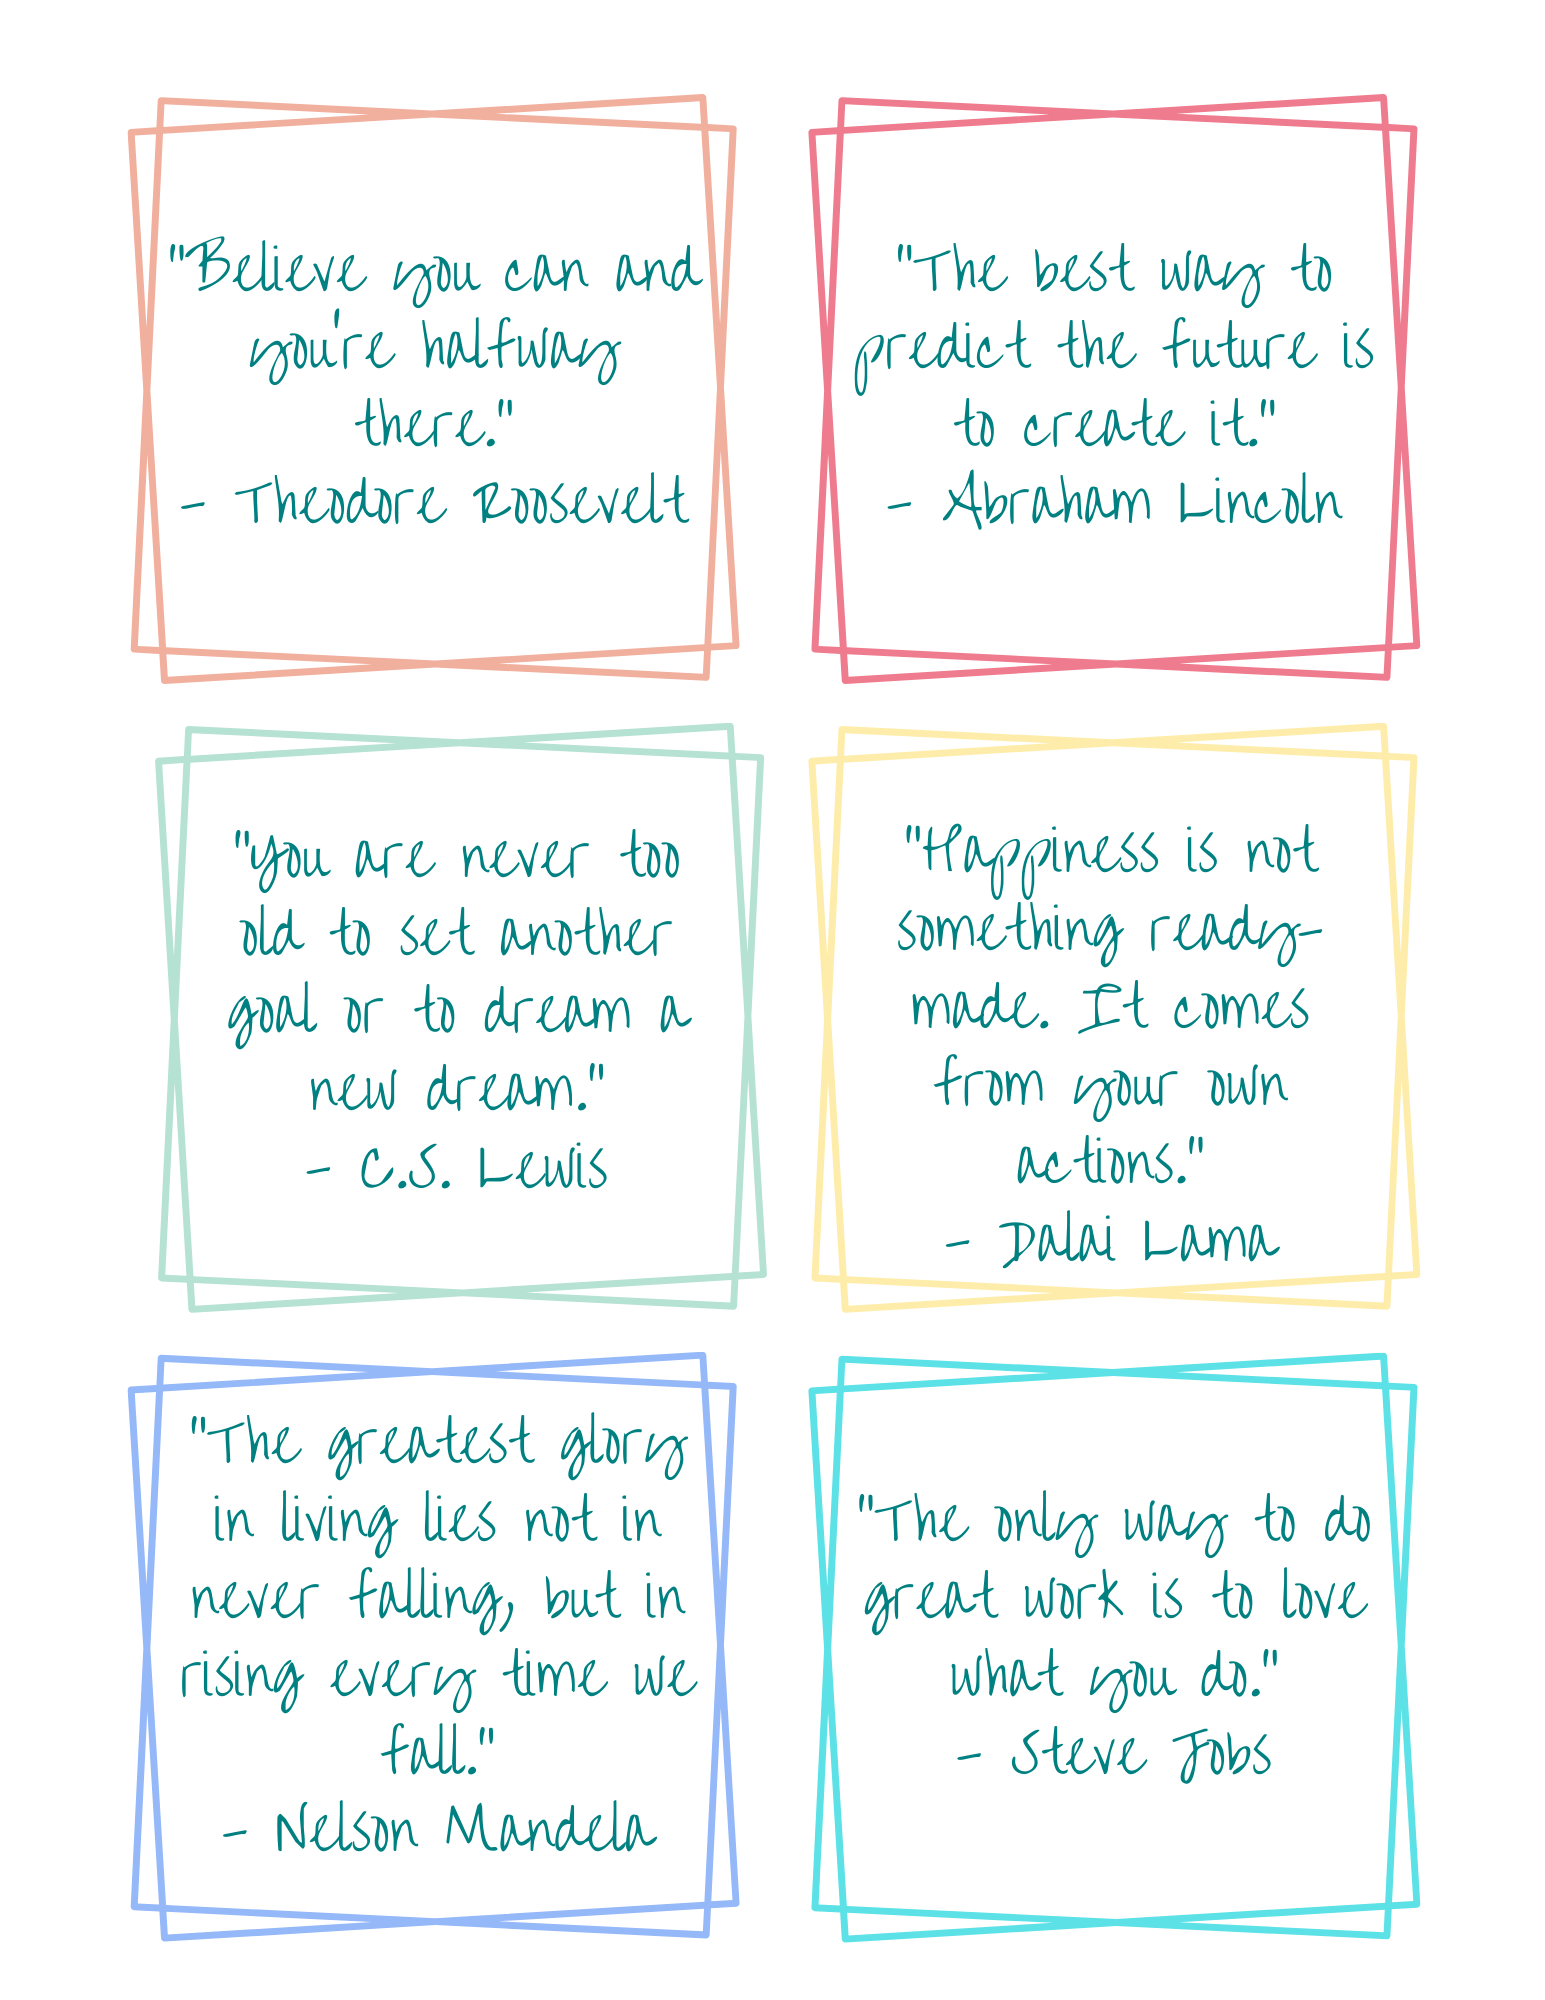 "Believe you can and
you're halfway
there."
- Theodore Roosevelt
"The best way to
predict the future is
to create it."
- Abraham Lincoln
"You are never too
old to set another
goal or to dream a
new dream."
- C.S. Lewis
"Happiness is not
something ready-
made. It comes
from your own
actions."
- Dalai Lama
"The greatest glory
in living lies not in
never falling, but in
rising every time we
fall."
- Nelson Mandela
"The only way to do
great work is to love
what you do."
- Steve Jobs